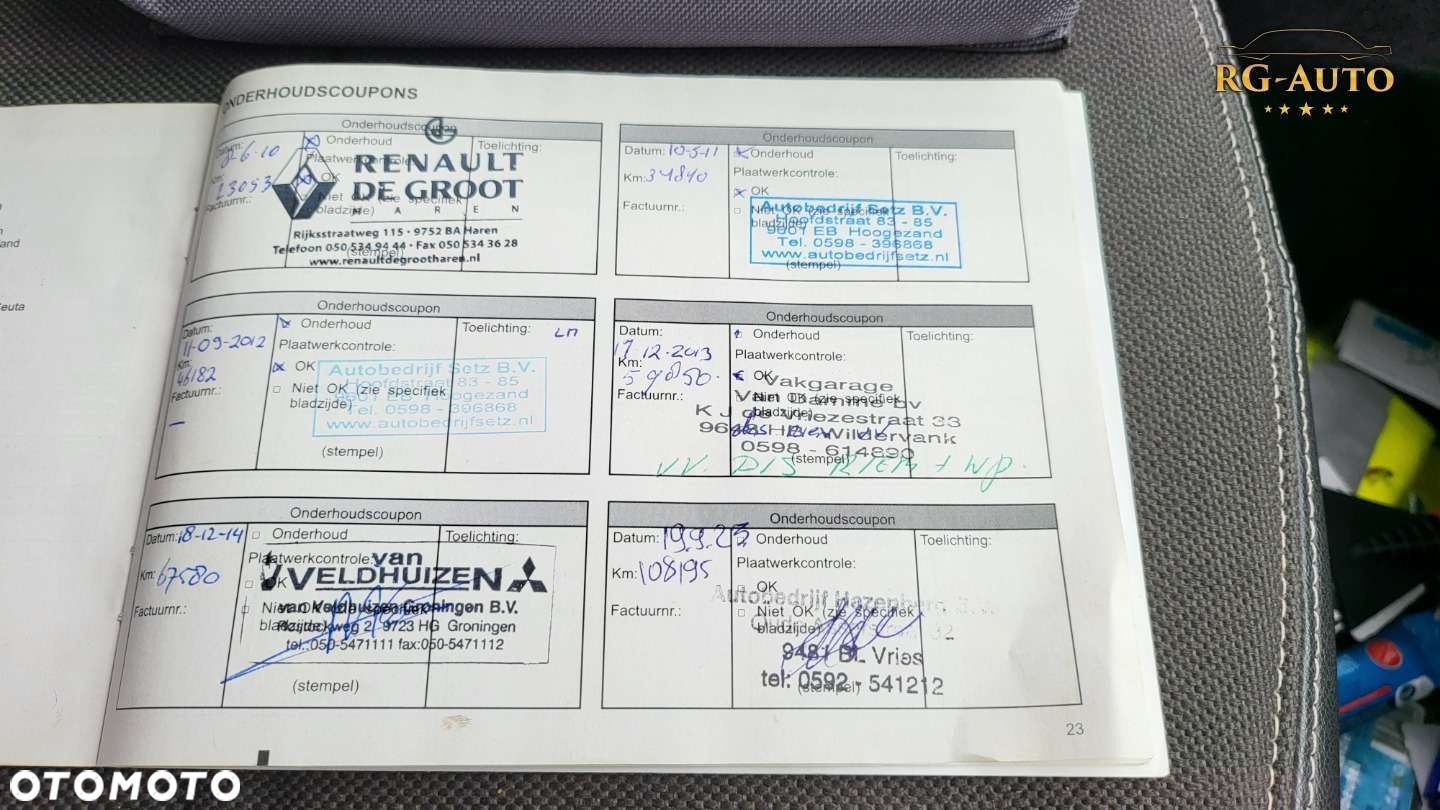 RG-AUTO
ONDERHOUDSCOUPONS
Onderhoudscoupon
Datum:
6-10
Km:
23053
Factuurnr.:
Onderhoud
Plaatwerkcontrole:
OK
Niet OK (zie specifiek
bladzijde)
(stempel)
Toelichting:
RENAULT
DE GROOT
HAREN
Rijksstraatweg 115 · 9752 BA Haren
Telefoon 050 534 94 44 · Fax 050 534 36 28
www.renaultdegrootharen.nl
Onderhoudscoupon
Datum: 10-5-11
Km: 34840
Factuurnr.:
Onderhoud
Plaatwerkcontrole:
OK
Niet OK (zie specifiek
bladzijde)
(stempel)
Toelichting:
Autobedrijf Setz B.V.
Hoofdstraat 83 - 85
9601 EB Hoogezand
Tel. 0598 - 396868
www.autobedrijfsetz.nl
Onderhoudscoupon
Datum:
11-09-2012
Km:
46182
Factuurnr.:
Onderhoud
Plaatwerkcontrole:
OK
Niet OK (zie specifiek
bladzijde)
(stempel)
Toelichting:
Autobedrijf Setz B.V.
Hoofdstraat 83 - 85
9601 EB Hoogezand
Tel. 0598 - 396868
www.autobedrijfsetz.nl
Onderhoudscoupon
Datum:
17-12-2013
Km:
59850
Factuurnr.:
Onderhoud
Plaatwerkcontrole:
OK
Niet OK (zie specifiek
bladzijde)
(stempel)
Toelichting:
Vakgarage
Van Damme bv
K J de Vriezestraat 33
9648 HB Wildervank
0598 - 614890
Onderhoudscoupon
Datum: 18-12-14
Km: 67580
Factuurnr.:
Onderhoud
Plaatwerkcontrole:
OK
Niet OK (zie specifiek
bladzijde)
(stempel)
Toelichting:
van
VELDHUIZEN
van Veldhuizen Groningen B.V.
9723 HG Groningen
tel.:050-5471111 fax:050-5471112
Onderhoudscoupon
Datum: 19.9.23
Km: 108195
Factuurnr.:
Onderhoud
Plaatwerkcontrole:
OK
Niet OK (zie specifiek
bladzijde)
(stempel)
Toelichting:
Autobedrijf
9481 BL Vries
tel: 0592 - 541212
23
OTOMOTO